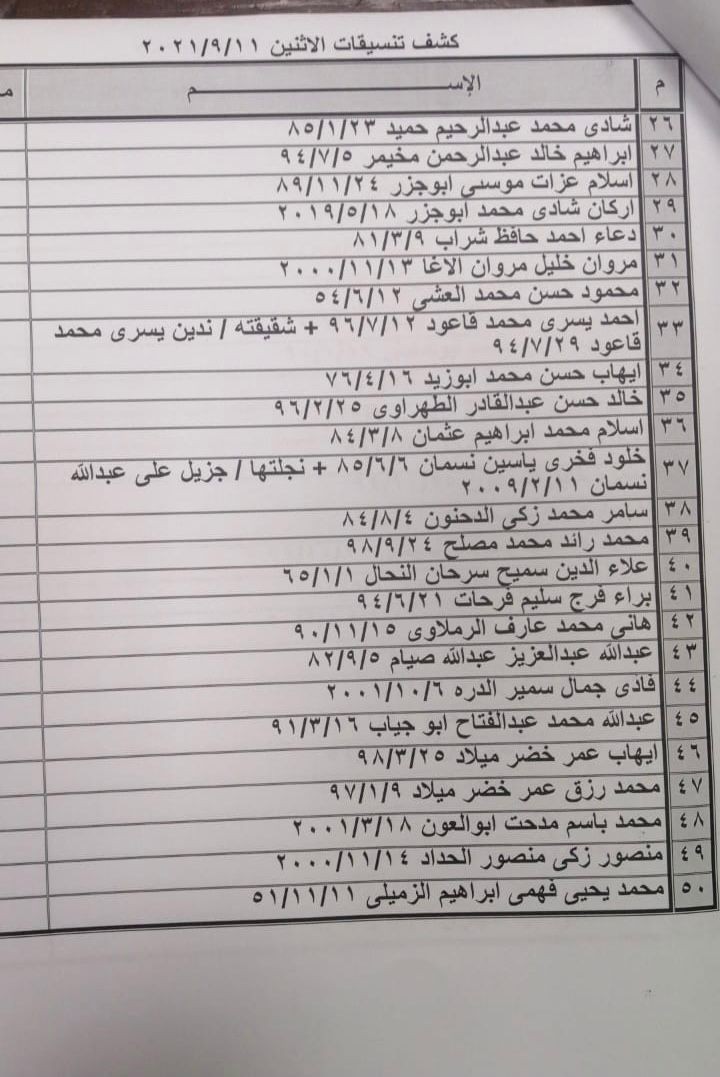 كشف تنسيقات الاثنين ٢٠٢١/٩/١١
م الإســـــــم
٢٦ شادى محمد عبدالرحيم حميد ٨٥/١/٢٣
٢٧ ابراهيم خالد عبدالرحمن مخيمر ٩٤/٧/٥
٢٨ اسلام عزات موسى ابوجزر ٨٩/١١/٢٤
٢٩ اركان شادى محمد ابوجزر ٢٠١٩/٥/١٨
٣٠ دعاء احمد حافظ شراب ٨١/٣/٩
٣١ مروان خليل مروان الاغا ٢٠٠٠/١١/١٣
٣٢ محمود حسن محمد العشى ٥٤/٦/١٢
٣٣ احمد يسرى محمد قاعود ٩٦/٧/١٢ + شقيقته / ندين يسرى محمد
قاعود ٩٤/٧/٢٩
٣٤ ايهاب حسن محمد ابوزيد ٧٦/٤/١٦
٣٥ خالد حسن عبدالقادر الطهراوى ٩٦/٢/٢٥
٣٦ اسلام محمد ابراهيم عثمان ٨٤/٣/٨
٣٧ خلود فخرى ياسين نسمان ٨٥/٦/٦ + نجلتها / جزيل على عبدالله
نسمان ٢٠٠٩/٢/١١
٣٨ سامر محمد زكى الدحنون ٨٤/٨/٤
٣٩ محمد رائد محمد مصلح ٩٨/٩/٢٤
٤٠ علاء الدين سميح سرحان النحال ٦٥/١/١
٤١ براء فرج سليم فرحات ٩٤/٦/٢١
٤٢ هانى محمد عارف الرملاوى ٩٠/١١/١٥
٤٣ عبدالله عبدالعزيز عبدالله صيام ٨٢/٩/٥
٤٤ فادى جمال سمير الدره ٢٠٠١/١٠/٦
٤٥ عبدالله محمد عبدالفتاح ابو جياب ٩١/٣/١٦
٤٦ ايهاب عمر خضر ميلاد ٩٨/٣/٢٥
٤٧ محمد رزق عمر خضر ميلاد ٩٧/١/٩
٤٨ محمد باسم مدحت ابوالعون ٢٠٠١/٣/١٨
٤٩ منصور زكى منصور الحداد ٢٠٠٠/١١/١٤
٥٠ محمد يحيى فهمى ابراهيم الزميلى ٥١/١١/١١